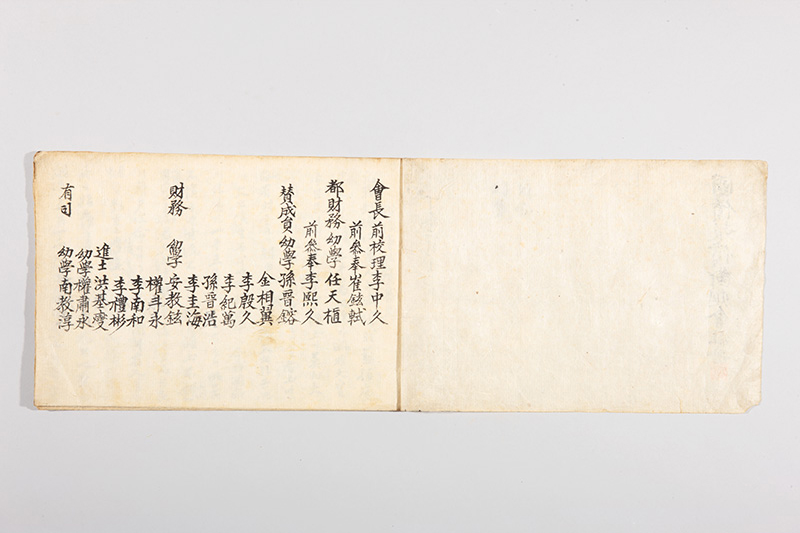 會長 前校理李中久
前參奉崔鉉軾
都財務 幼學 任天樞
前參奉李熙久
賛成員 幼學 孫晋鎔
金相翼
李殷久
李紀萬
孫晋浩
李圭海
財務 幼學 安教鉉
權斗永
李南和
李禮彬
進士洪基燮
幼學權肅永
有司 幼學南教淳